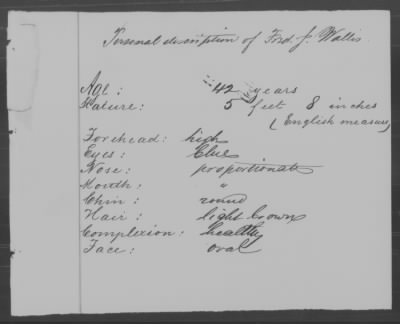 Personal description of Fred J. Wallis
Age: 42 years
Stature: 5 feet 8 inches
(English measure)
Forehead: high
Eyes: blue
Nose: proportionate
Mouth: "
Chin: round
Hair: light brown
Complexion: healthy
Face: oval